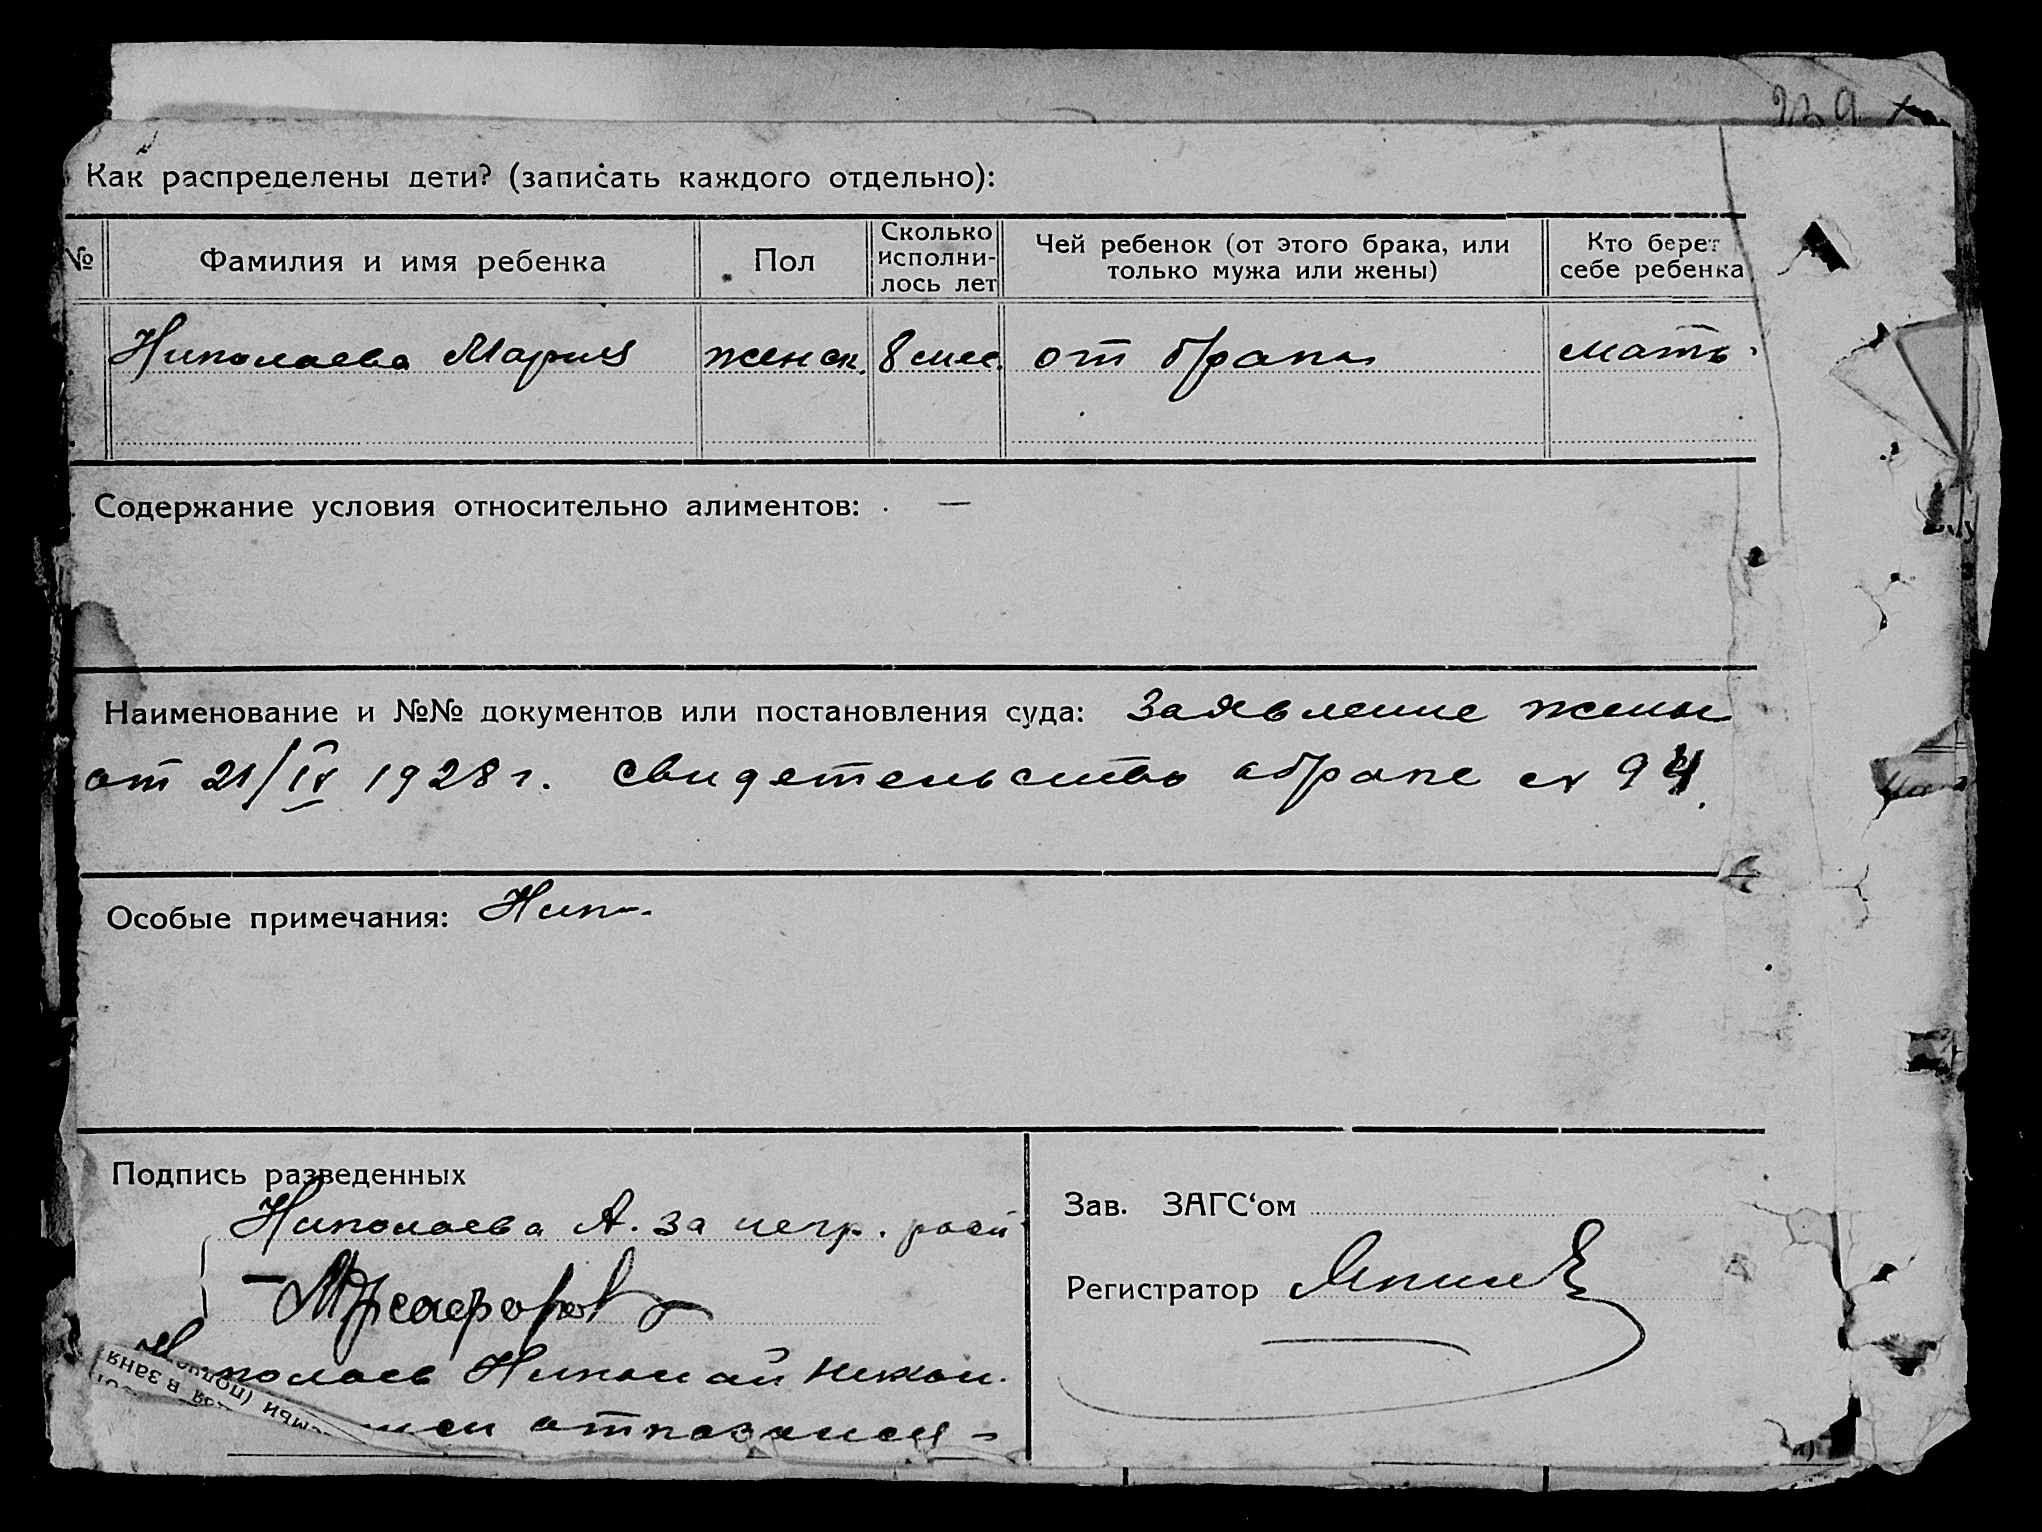 Как распределены дети? (записать каждого отдельно):
№ Фамилия и имя ребенка Пол Сколько исполни-лось лет Чей ребенок (от этого брака, или только мужа или жены) Кто берет себе ребенка
Николаева Мария женск. 8 мес. от брака мать
Содержание условия относительно алиментов: —
Наименование и №№ документов или постановления суда: Заявление жены
от 21/IV 1928 г. свидетельство о браке № 94.
Особые примечания:
Подпись разведенных
Николаева А. за негр. расп
Зав. ЗАГС‘ом
Регистратор
Николаев Николай Никол.
отказался -